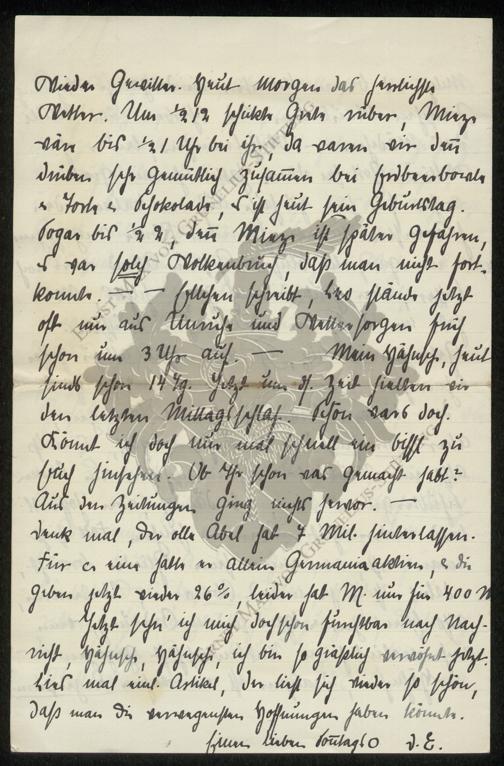 Wieder Gewitter. Heut Morgen das herrlichste
Wetter. Um ½12 schickte Grete rüber, Mieze
wäre bis ½1 Uhr bei ihr, da waren wir denn
drüben sehr gemütlich zusammen bei Erdbeerbowle
u Torte u Schokolade, es ist heut sein Geburtstag.
Sogar bis ½2, denn Mieze ist später gefahren,
es war solch Wolkenbruch, daß man nicht fort-
konnte. — — schreibt, Leo stände jetzt
oft nur aus Unruhe und Wettersorgen früh
schon um 3 Uhr auf. — Mein Hähnsch, heut
sinds schon 14 Tg. Jetzt um d. Zeit hielten wir
den letzten Mittagsschlaf. Schön wars doch.
Könnt ich doch nur mal schnell ein bissl zu
Euch hinsehen. Ob Ihr schon was gemacht habt?
Aus den Zeitungen ging nichts hervor. —
Denk mal, der olle Abel hat 7 Mil. hinterlassen.
Für ca eine hatte er allein Germaniaaktien, u die
geben jetzt wieder 26%, leider hat M. nur für 400 M
Jetzt sehn' ich mich doch schon furchtbar nach Nach-
richt, Hähnsch, Hähnsch, ich bin so gräßlich verwöhnt jetzt.
Lies mal einl. Artikel, der liest sich wieder so schön,
daß man die verwegensten Hoffnungen haben könnte.
Einen lieben Sonntags O D. E.
Ernst Max von Grunelius-Stiftung
Ernst Max von Grunelius-Stiftung